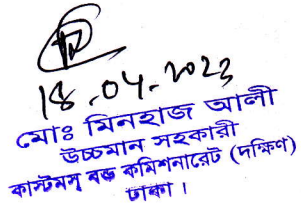 18.04.2023
মোঃ মিনহাজ আলী
উচ্চমান সহকারী
কাস্টমস্ বন্ড কমিশনারেট (দক্ষিণ)
ঢাকা।